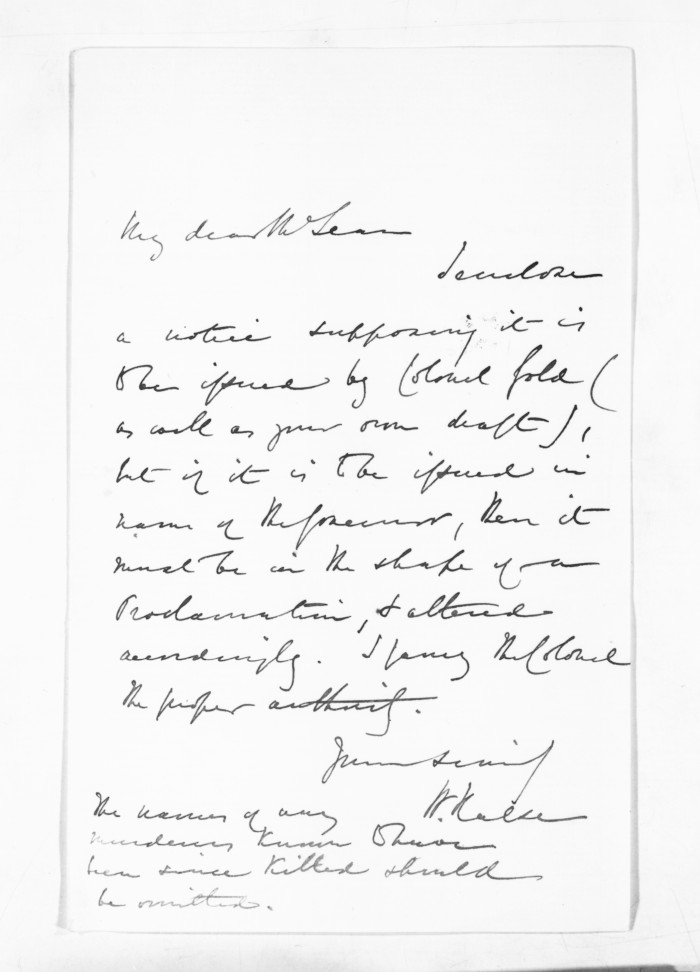 My dear McLean
I enclose
a notice supposing it is
to be issued by Colonel Gold (
as well as your own draft),
but if it is to be issued in
name of the Governor, then it
must be in the shape of a
Proclamation, & altered
accordingly. I fancy the Colonel
the proper authority.
Yours sincly
W. Halse
The names of any
murderers known to have
been since killed should
be omitted.